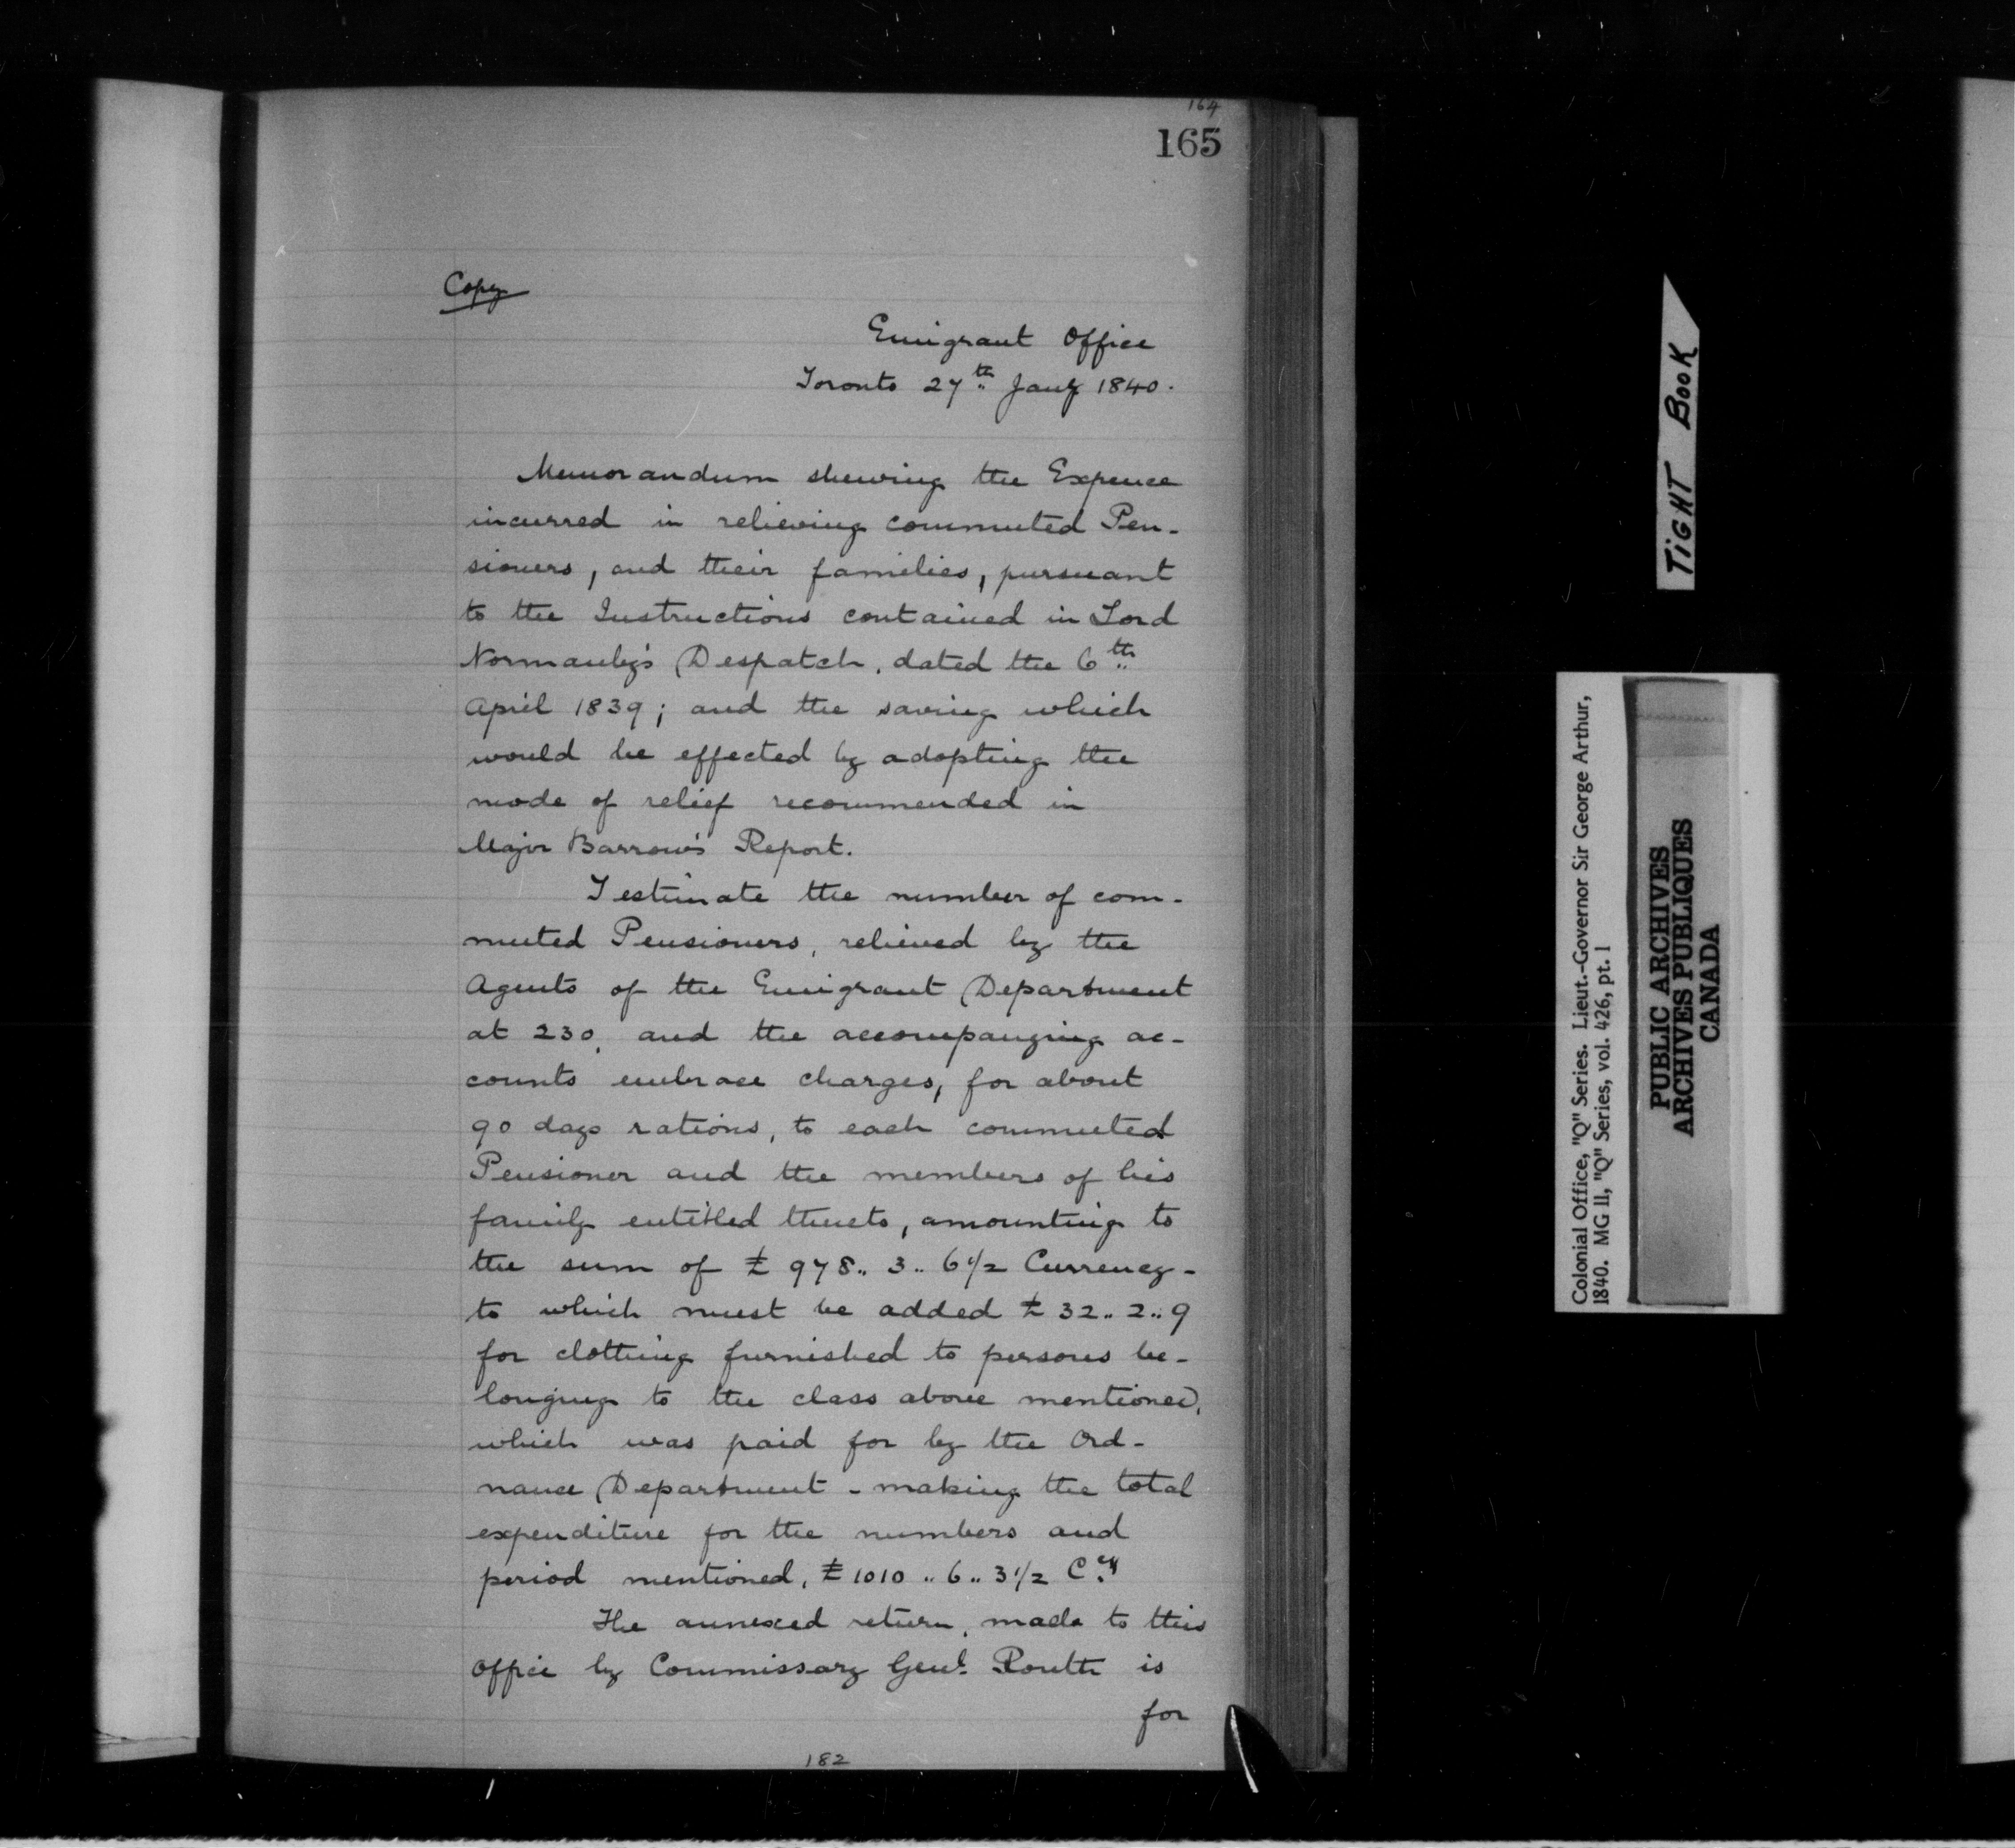 164
165
Copy
Emigrant Office
Toronto 27th Jany 1840.
Memorandum shewing the Expence
incurred in relieving commuted Pen-
sioners, and their families, pursuant
to the Instructions contained in Lord
Normanby's Despatch, dated the 6th
April 1839; and the saving which
would be effected by adopting the
mode of relief recommended in
Major Barrow's Report.
I estimate the number of com-
muted Pensioners, relieved by the
Agents of the Emigrant Department
at 230, and the accompanying ac-
counts embrace charges, for about
90 days rations, to each commuted
Pensioner and the members of his
family entitled thereto, amounting to
the sum of £ 978.. 3.. 6 1/2 Currency -
to which must be added £ 32.. 2.. 9
for clothing furnished to persons be-
longing to the class above mentioned,
which was paid for by the Ord-
nance Department - making the total
expenditure for the numbers and
period mentioned, £ 1010 .. 6.. 3 1/2 Cy
The annexed return, made to this
Office by Commissary Genl. Routh is
for
182
TIGHT BOOK
Colonial Office, "Q" Series. Lieut.-Governor Sir George Arthur,
1840. MG 11, "Q" Series, vol. 426, pt. 1
PUBLIC ARCHIVES
ARCHIVES PUBLIQUES
CANADA